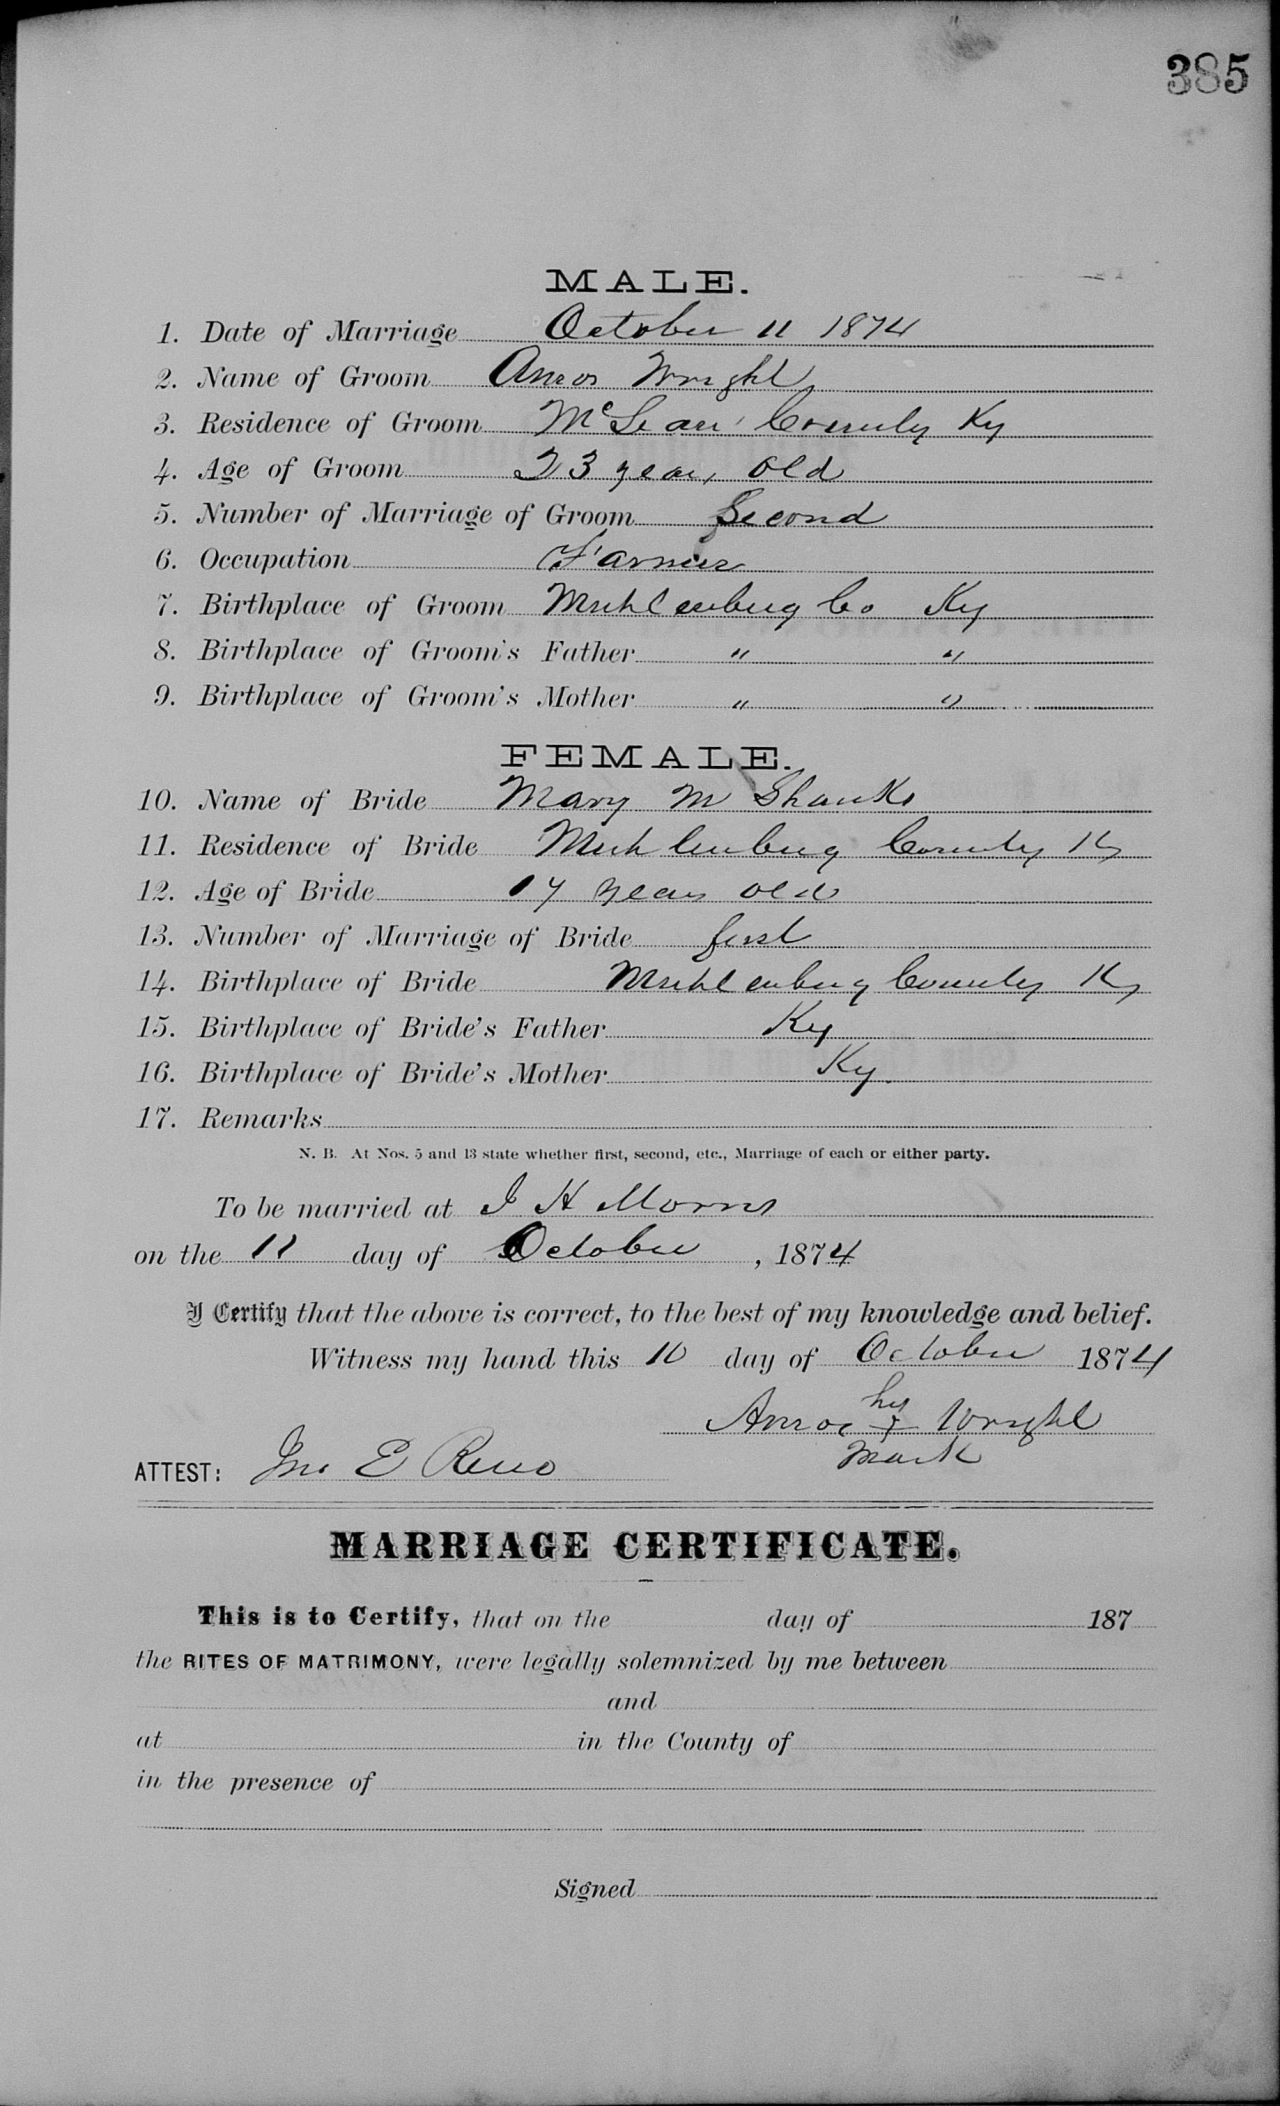 385
MALE.
1. Date of Marriage October 11 1874
2. Name of Groom Amos Wright
3. Residence of Groom McLean County Ky
4. Age of Groom 23 years old
5. Number of Marriage of Groom Second
6. Occupation Farmer
7. Birthplace of Groom Muhlenburg Co Ky
8. Birthplace of Groom's Father " "
9. Birthplace of Groom's Mother " "
FEMALE.
10. Name of Bride Mary M Shanks
11. Residence of Bride Muhlenburg County Ky
12. Age of Bride 17 years old
13. Number of Marriage of Bride first
14. Birthplace of Bride Muhlenburg County Ky
15. Birthplace of Bride's Father Ky
16. Birthplace of Bride's Mother Ky.
17. Remarks
N. B. At Nos. 5 and 13 state whether first, second, etc., Marriage of each or either party.
To be married at J H Morris
on the 11 day of October, 1874
I Certify that the above is correct, to the best of my knowledge and belief.
Witness my hand this 10 day of October 1874
his
Amos + Wright
mark
ATTEST: Jno E Reno
MARRIAGE CERTIFICATE.
This is to Certify, that on the day of 187
the RITES OF MATRIMONY, were legally solemnized by me between
and
at in the County of
in the presence of
Signed